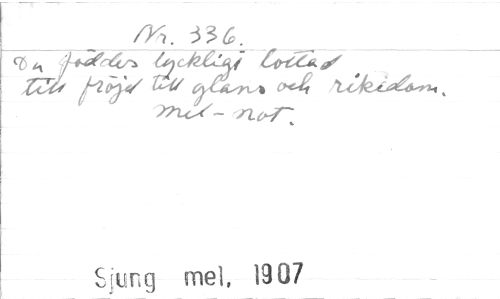 Nr. 336.
Du föddes lyckligt lottad
till fröjd till glans och rikedom.
mel-not.
Sjung mel. 1907